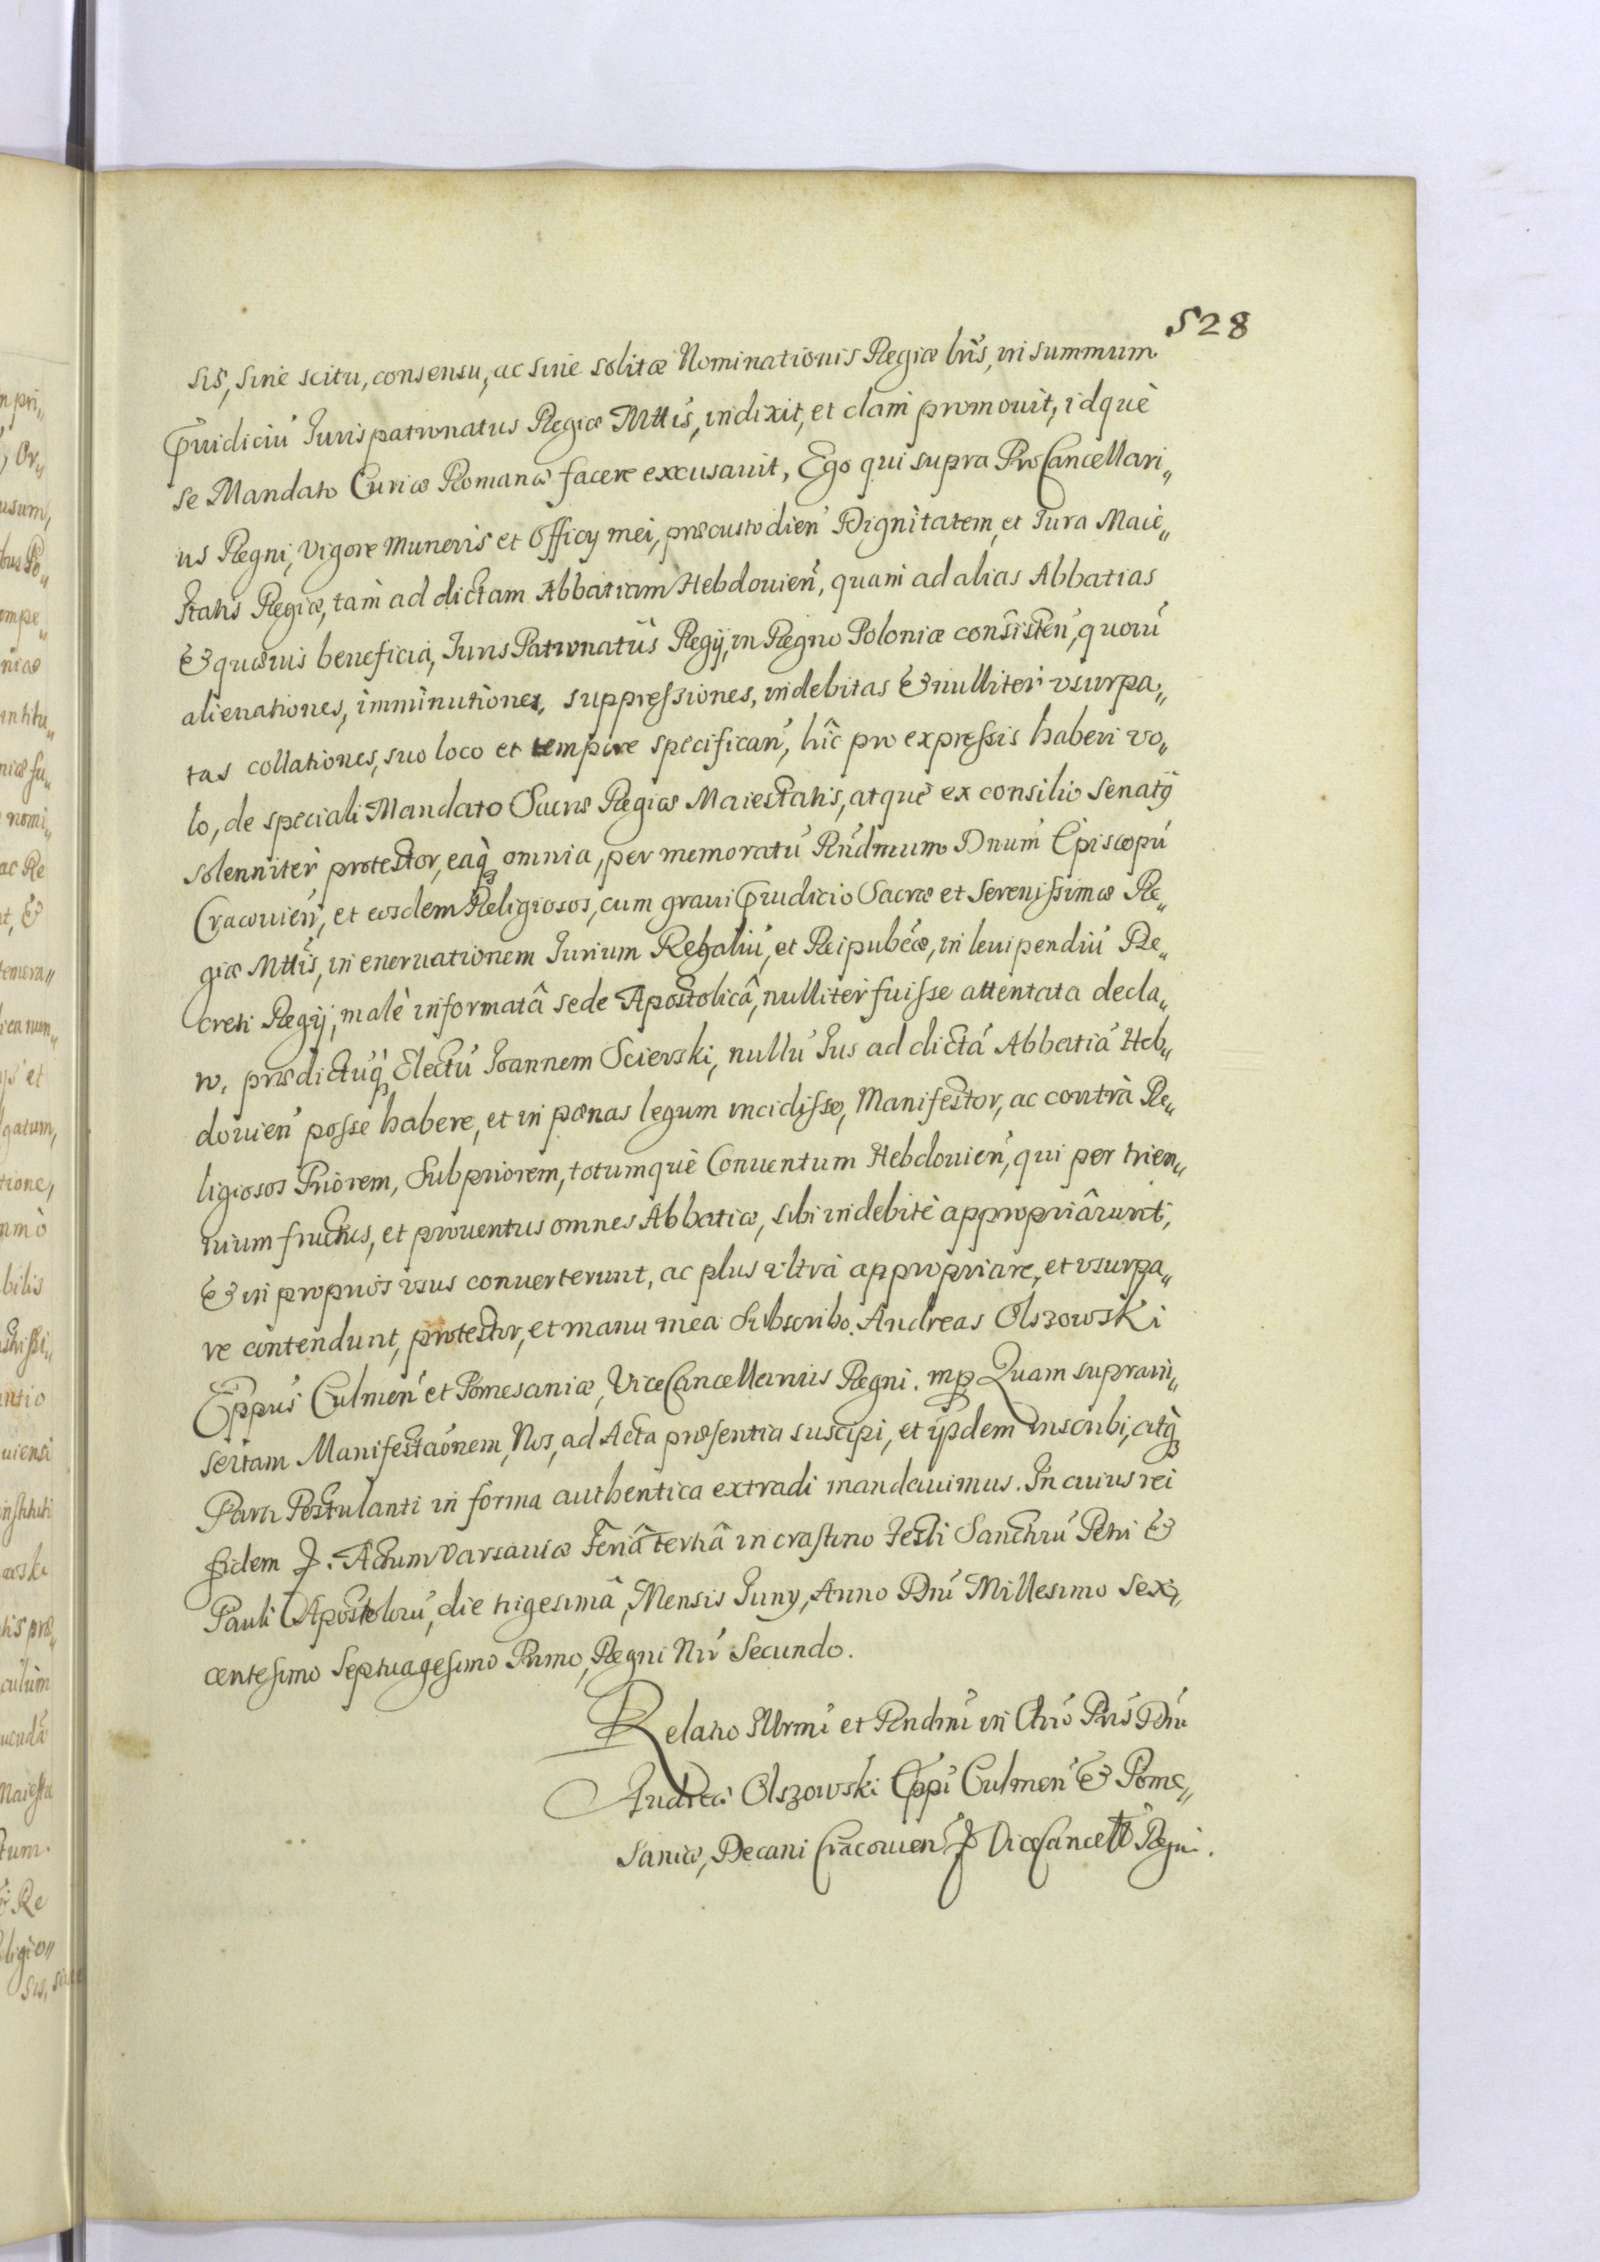 528
sis, sine scitu, consensu, ac sine solitæ Nominationis Regiæ lris, in summum
Pruidiciũ Jurispatronatus Regiæ Mttis, indixit, et clam promouit, idquè
se Mandato Curiæ Romanæ facere excusauit, Ego qui supra ProCancellari„
us Regni, Vigore Muneris et Officy mei, præcustodien Dignitatem, et Jura Maie„
statis Regiæ, tam ad dictam Abbatiam Hebdouien, quam ad alias Abbatias
& quæuis beneficia, Juris Patronatus Regij, in Regno Poloniæ consisten, quorũ
alienationes, imminutiones, suppressiones, indebitas & nulliter vsurpa„
tas collationes, suo loco et tempore specifican, hîc pro expressis haberi vo„
lo, de speciali Mandato Sacræ Regiæ Maiestatis, atquè ex consilio Senatus
solenniter protestor, eaq; omnia, per memoratũ Rndmum Dnum Episcopũ
Cracouien, et eosdem Religiosos, cum graui Pruidicio Sacræ et Serenissimæ Re„
giæ Mttis, in eneruationem Jurium Regaliũ, et Reipubcæ, in leuipendiũ De„
creti Regij, malè informatâ sede Apostolicâ, nulliter fuisse attentata decla„
ro, prædictũq; Electũ Joannem Scierski, nullũ Jus ad dictã Abbatiã Heb„
douien posse habere, et in pœnas legum incidisse, Manifestor, ac contrà Re„
ligiosos Priorem, Subpriorem, totumquè Conuentum Hebdouien, qui per trien„
nium fructus, et prouentus omnes Abbatiæ, sibi indebitè appropriârunt,
& in proprios vsus conuerterunt, ac plus vltrà appropriare, et vsurpa„
re contendunt, protestor, et manu mea Subscribo. Andreas Olszowski
Eppus Culmen et Pomesaniæ, ViceCancellarius Regni. mp Quam suprain„
sertam Manifestaõnem, Nos, ad Acta præsentia suscipi, et ijsdem inscribi, atq;
Parti Postulanti in forma authentica extradi mandauimus. In cuius rei
fidem &. Actum Varsauiæ Feriâ tertiâ in crastino Festi Sanctorũ Petri &
Pauli Apostolorũ, die trigesimâ, Mensis Juny, Anno Dni Millesimo Sex„
centesimo Septuagesimo Primo, Regni Nri Secundo.
Relatio Illrmi et Rndmi in Chro Pris Dni
Andreæ Olszowski Eppi Culmen & Pome„
saniæ, Decani Cracouien & ViceCancell Regni.